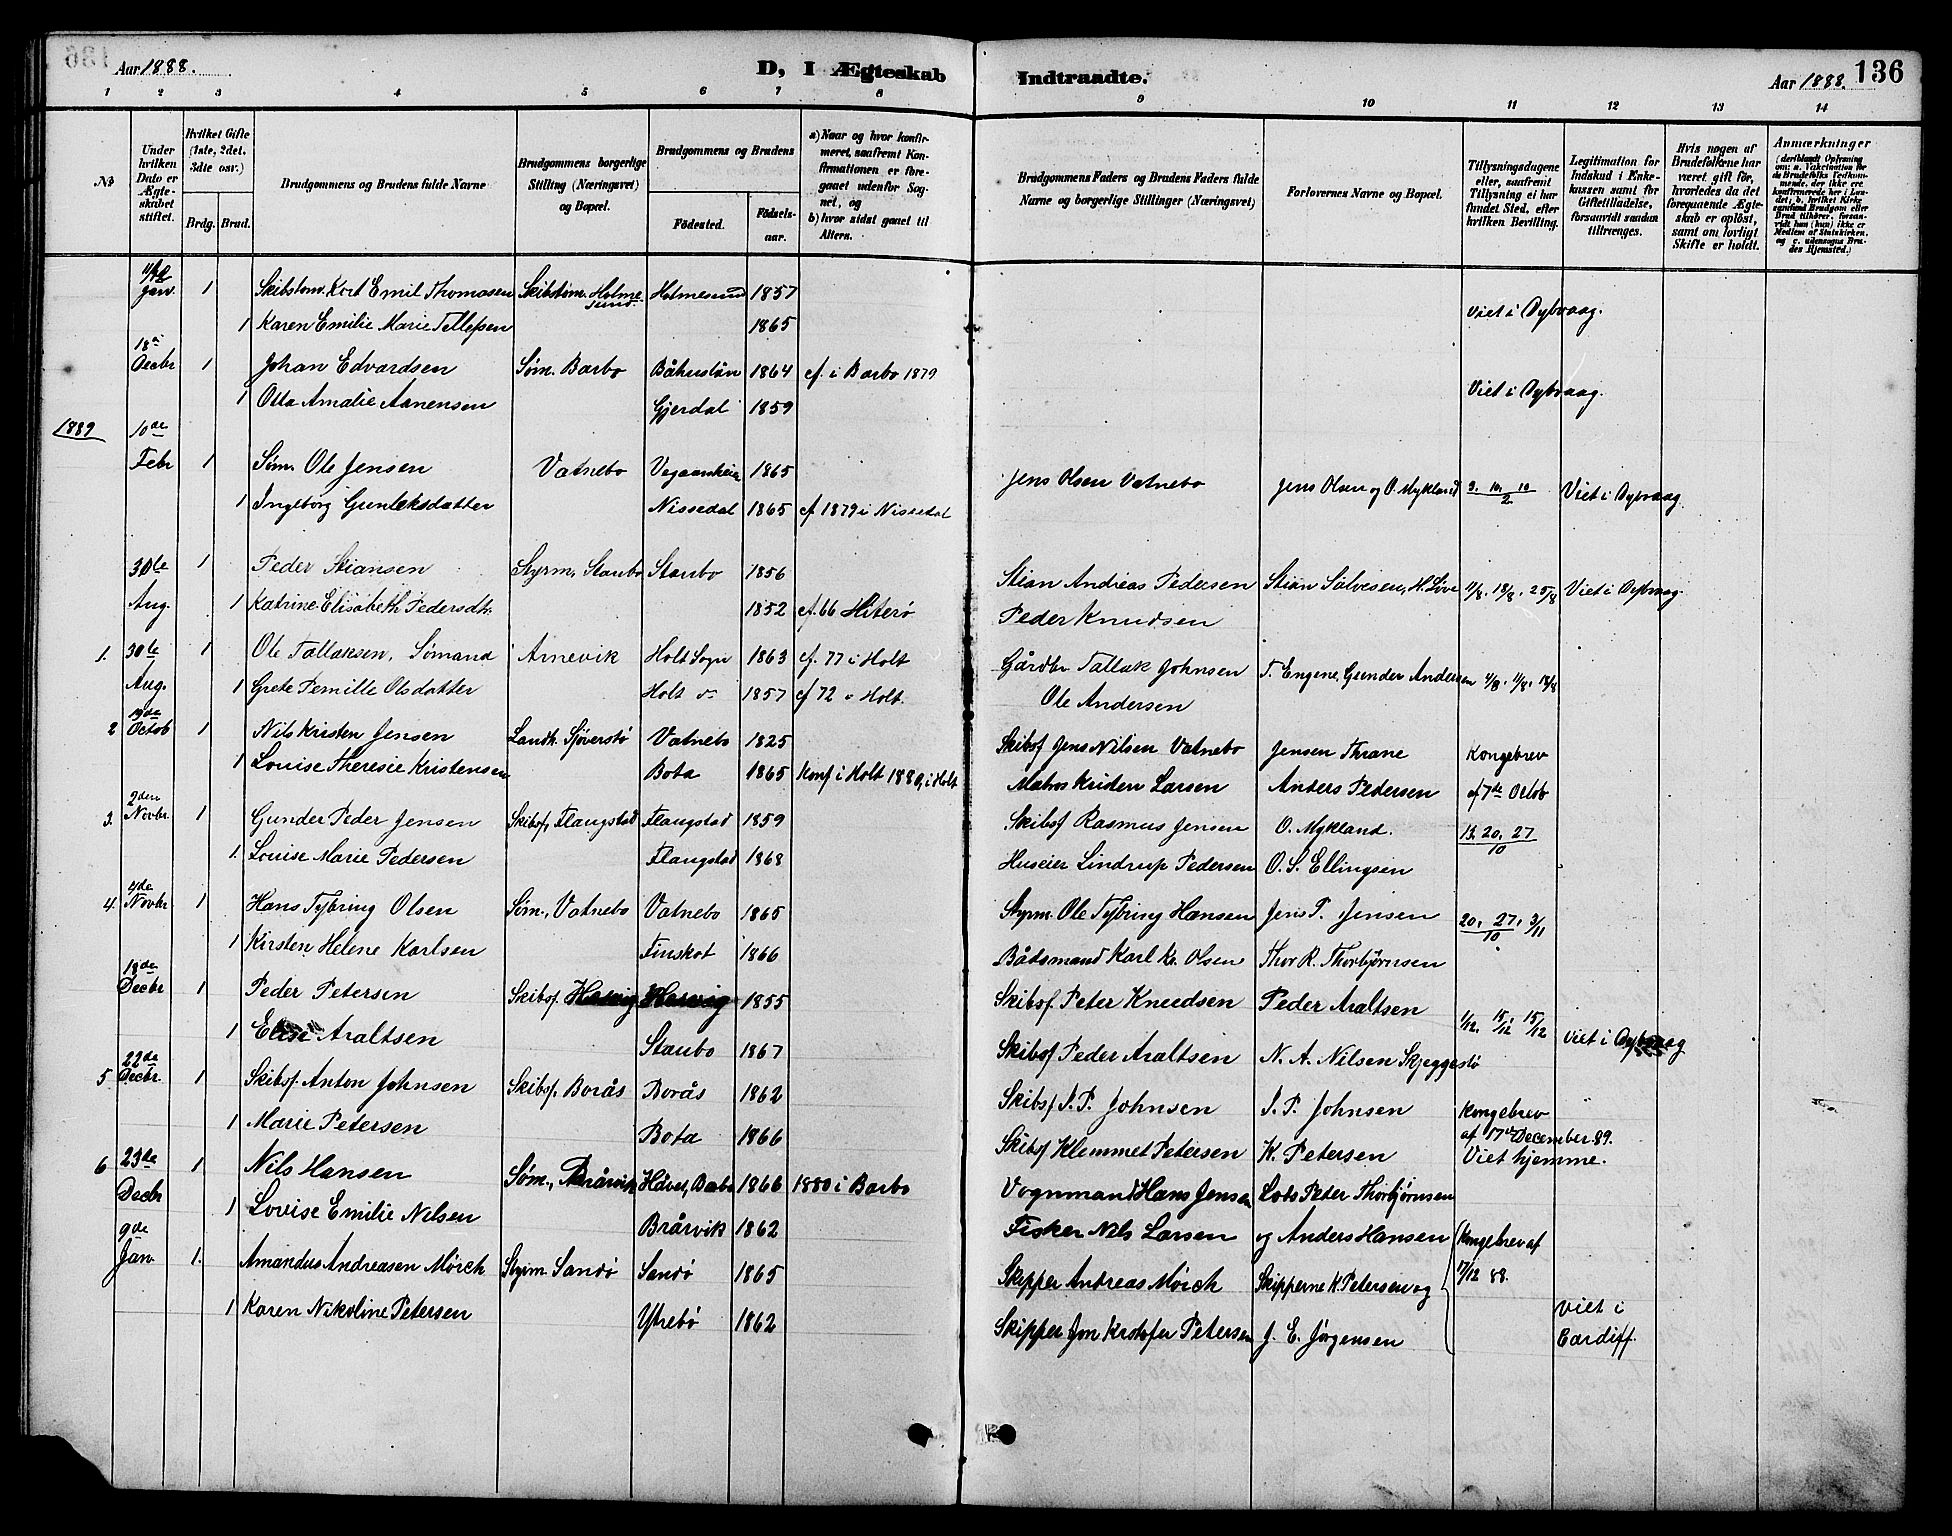 136
Aar 1888.
D, I Ægteskab Indtraadte.
Aar 1888.
1 2 3 4 5 6 7 8 9 10 11 12 13 14
No
Under hvilken Dato er Ægteskabet stiftet.
Hvilket Gifte (1ste, 2det, 3dte osv.)
Brdg. Brud.
Brudgommens og Brudens fulde Navne
Brudgommens borgerlige Stilling (Næringsvei) og Bopæl.
Brudgommens og Brudens
Fødested.
Fødsels-aar.
a) Naar og hvor konfirmeret, saafremt Konfirmationen er foregaaet udenfor Sognet, og
b) hvor sidst gaaet til Alters.
Brudgommens Faders og Brudens Faders fulde Navne og borgerlige Stillinger (Næringsvei)
Forlovernes Navne og Bopæl.
Tillysningsdagene eller, saafremt Tillysning ei har fundet Sted, efter hvilken Bevilling.
Legitimation for Indskud i Enkekassen samt for Giftetilladelse, forsaavidt saadan tiltrænges.
Hvis nogen af Brudefolkene har været gift før, hvorledes da det foregaaende Ægteskab er opløst, samt om lovligt Skifte er holdt.
Anmærkninger
Janv. 1 Skibstøm. Kort Emil Thomasen Skibstøm. Holmesund Holmesund 1857
1 Karen Emilie Marie Tellefsen 1865 Viet i Dybvaag.
18de Decbr 1 Johan Edvardsen Søm. Barbo Båhuslän 1864 cf. i Barbo 1879
1 Otta Amalie Aanensen Gjerdal 1859 Viet i Dybvaag.
1889 10de
Febr 1 Søm. Ole Jensen Vatnebo Vegaarsheien 1865 Jens Olsen Vatnebo Jens Olsen og O. Mykland 3. 10. 10/2 Viet i Dybvaag.
1 Ingeborg Gunleksdatter Nissedal 1865 cf 1879 i Nissedal
30te 1 Peder Stiansen Styrm. Staubo Staubo 1856 Stian Andreas Pedersen Stian Salvesen, H. Løve 11/8. 18/8. 25/8 Viet i Dybvaag.
Aug. 1 Katrine Elisabeth Pedersdt. 1852 cf. 66 Hiterø Peder Knudsen
1. 30te 1 Ole Tallaksen, Sømand Arnevik Holt Sogn 1863 cf. 77 i Holt Gårdbr Tallak Johnsen T. Engene, Gunder Andersen 4/8. 11/8. 18/8
Aug. 1 Grete Pernille Olsdatter Holt 1857 cf 72 i Holt. Ole Andersen
2 19de Octob 1 Nils Kristen Jensen Landh. Sjøverstø Vatnebo 1825 Skibsf Jens Nilsen Vatnebo Jensen Thrane Kongebrev
1 Louise Theresie Kristensen Bota 1865 Konf i Holt 1880, i Holt Matros Kristen Larsen Anders Pedersen af 7de Octob
3. 2den Novbr. 1 Gunder Peder Jensen Skibsf, Flaugstad Flaugstad 1859 Skibsf Rasmus Jensen O. Mykland. 13. 20. 27/10
1. Louise Marie Pedersen Flaugstad 1868 Huseier Lindrup Pedersen O. S. Ellingsen
4. 4de Novbr 1 Hans Tybring Olsen Søm., Vatnebo Vatnebo 1865 Styrm. Ole Tybring Hansen Jens T. Jensen 20. 27./10 3/11
1 Kirsten Helene Karlsen Finskot 1866 Bådsmand Karl Kr. Olsen Thor R. Thorbjørnsen
18de Decbr 1 Peder Petersen Skibsf. 1855 Skibsf. Peter Knudsen Peder Araltsen 1/12. 15/12 15/12 viet i Dybvaag
1 Elise Araltsen Staubo 1867 Skibsf Peder Araltsen N. A. Nilsen Skjeggestø
5. 22de Decbr. 1 Skibsf. Anton Johnsen Skibsf. Borås Borås 1862 Skibsf J. P. Johnsen J. P. Johnsen Kongebrev
1 Marie Petersen Bota 1866 Skibsf Klemmet Petersen K. Petersen af 17de December 89. Viet hjemme.
6 23de 1 Nils Hansen Søm., Brårvik Havet, Barbo 1866 1880 i Barbo Vognmand Hans Jensen Lods Peter Thorbjørnsen
Decbr 1 Lovise Emilie Nilsen Brårvik 1862 Fisker Nils Larsen og Anders Hansen
9de Jan. 1. Amandus Andreasen Mørch Styrm Sandø Sandø 1865 Skipper Andreas Mørch Skipperne K. Petersen og Kongebrev af 17/12 88.
1 Karen Nikoline Petersen Ytrebø 1862 Skipper Jon Kristofer Petersen J. E. Jörgensen viet i Cardiff.